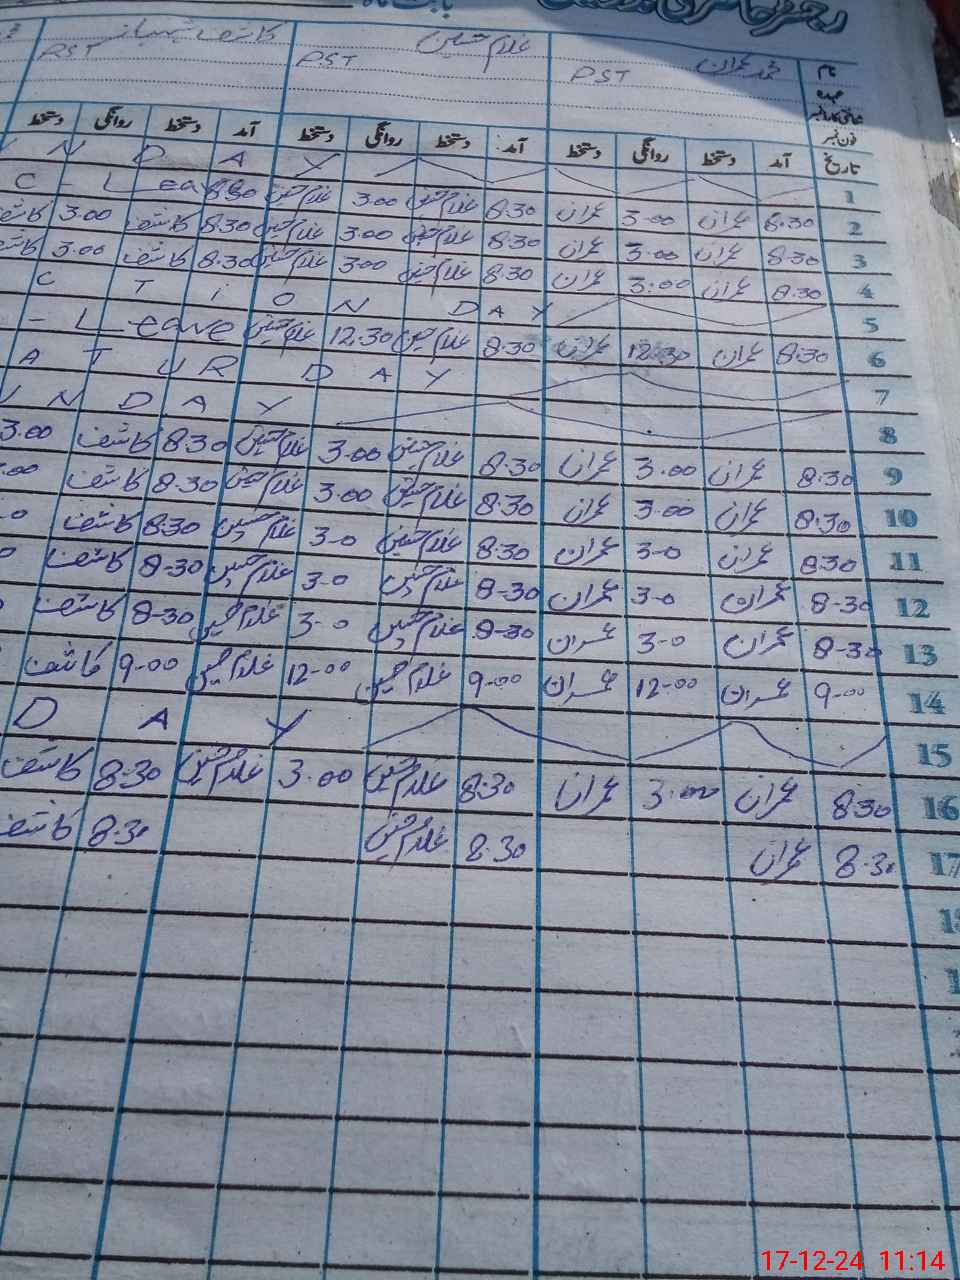 نام محمد عمران PST غلام حسین PST کاشف شہباز PST
عہدہ
شناختی کارڈ نمبر
فون نمبر
تاریخ آمد دستخط روانگی دستخط آمد دستخط روانگی دستخط آمد دستخط روانگی دستخط
1 N D A Y
2 8.30 عمران 3.00 عمران 8.30 غلام حسین 3.00 غلام حسین 8.30 C - Leave
3 8.30 عمران 3.00 عمران 8.30 غلام حسین 3.00 غلام حسین 8.30 کاشف 3.00 کاشف
4 8.30 عمران 3.00 عمران 8.30 غلام حسین 3.00 غلام حسین 8.30 کاشف 3.00 کاشف
5 C T i O N D A Y
6 8.30 عمران 12.30 عمران 8.30 غلام حسین 12.30 غلام حسین - Leave
7 A T U R D A Y
8 U N D A Y
9 8.30 عمران 3.00 عمران 8.30 غلام حسین 3.00 غلام حسین 8.30 کاشف 3.00
10 8.30 عمران 3.00 عمران 8.30 غلام حسین 3.00 غلام حسین 8.30 کاشف .00
11 8.30 عمران 3-0 عمران 8.30 غلام حسین 3-0 غلام حسین 8.30 کاشف -0
12 8-30 عمران 3-0 عمران 8-30 غلام حسین 3-0 غلام حسین 8-30 کاشف 0
13 8-30 عمران 3-0 عمران 8-30 غلام حسین 3-0 غلام حسین 8-30 کاشف
14 9-00 عمران 12-00 عمران 9-00 غلام حسین 12-00 غلام حسین 9-00 کاشف
15 D A Y
16 8.30 عمران 3.00 عمران 8.30 غلام حسین 3.00 غلام حسین 8-30 کاشف
17 8.30 عمران 8.30 غلام حسین 8.30 کاشف
17-12-24 11:14